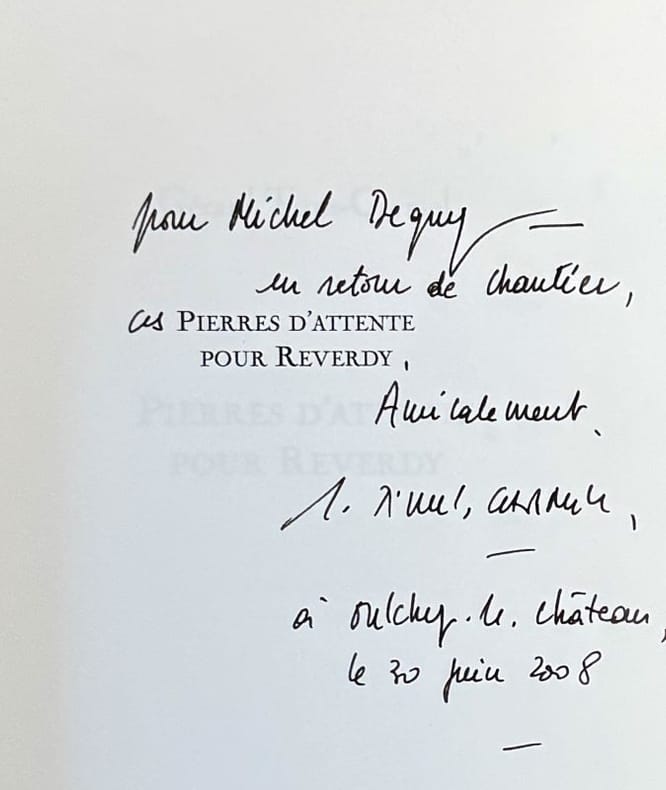 pour Michel Deguy —
en retour de chantier,
ces PIERRES D'ATTENTE
POUR REVERDY,
Amicalement.
à Oulchy-le-Château,
le 30 juin 2008
PIERRES D'ATTENTE
POUR REVERDY